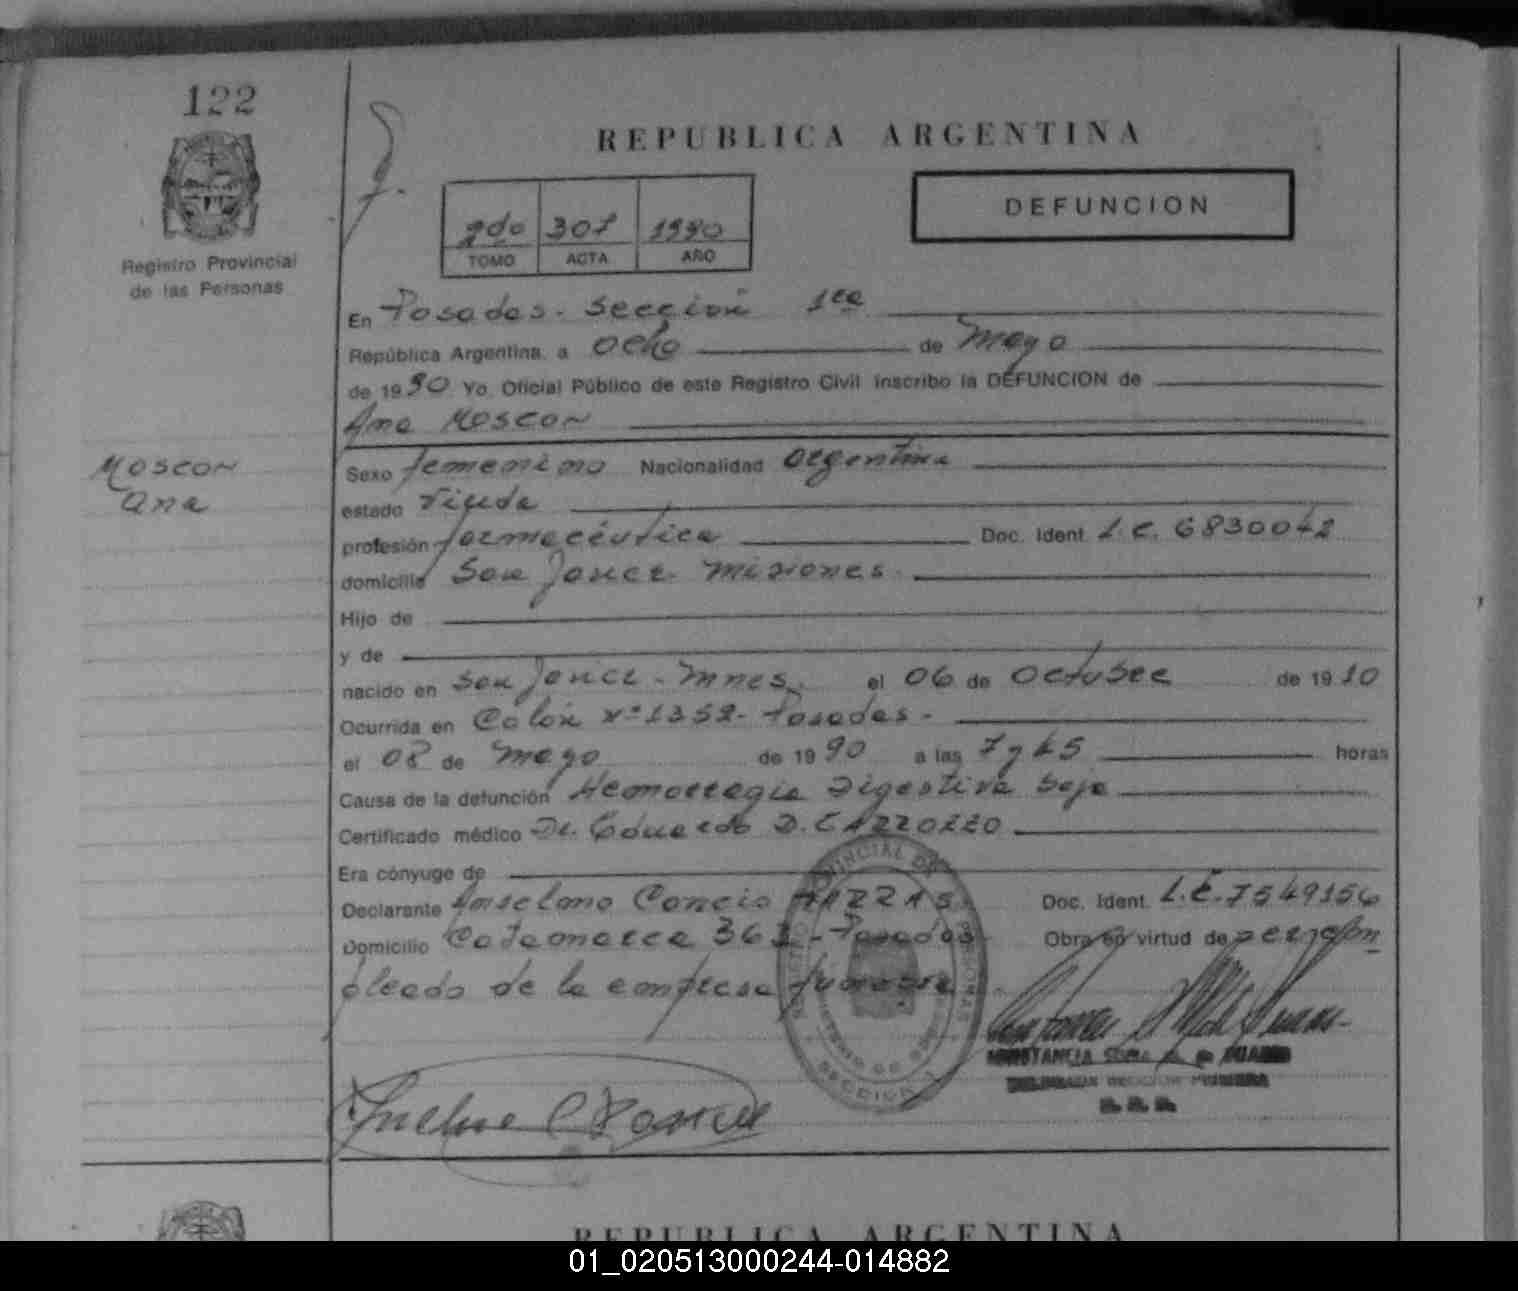 122
REPUBLICA ARGENTINA
DEFUNCION
2do 307 1990
TOMO ACTA AÑO
Registro Provincial
de las Personas
En Posadas. Sección 1ra
República Argentina, a ocho de Mayo
de 1990 Yo, Oficial Público de este Registro Civil inscribo la DEFUNCION de
Ana MOSCON
MOSCON
Ana
Sexo femenino Nacionalidad argentina
estado viuda
profesión farmacéutica Doc. Ident. L.C. 6830042
domicilio San Javier. Misiones.
Hijo de
y de
nacido en San Javier - Mnes. el 06 de Octubre de 1910
Ocurrida en Colón Nº 1352 - Posadas -
el 08 de Mayo de 1990 a las 7 y 45 horas
Causa de la defunción Hemorragia Digestiva baja
Certificado médico Dr. Eduardo D. CAZZOZZO
Era cónyuge de
Declarante Anselmo Doc. Ident. L.E. 7549156
Domicilio Catamarca - Posadas Obra en virtud de ser
pleado de la empresa funebre
SECCION 1
REPUBLICA ARGENTINA
01_020513000244-014882